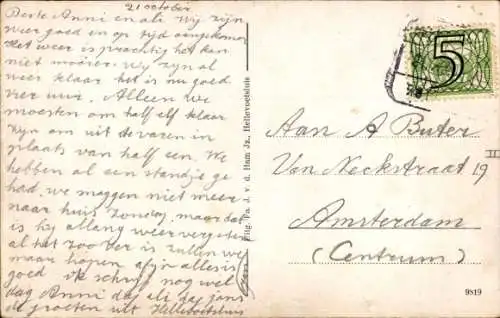 21 october
Beste Anni en ali Wij zijn
weer goed en op tijd aangekomen
Het weer is prachtig het kan
niet mooier. Wij zijn al
weer klaar het is nu goed
vier uur. Alleen we
moesten om half elf klaar
zijn om uit te varen in
plaats van half een. We
hebben al een standje ge
had, we maggen niet meer
naar huis Zondag, maar dat
is hij allang weer vergeten
al het zoover is zullen we
maar hopen alles is
goed ik schrijf nog wel
dag Anni dag ali dag
de groeten uit Hellevoetsluis
Uitg. Fa. J. v. d. Ham Jz., Hellevoetsluis
5
Aan A Buter
Van Neckstraat 19 II
Amsterdam
(Centrum)
9819